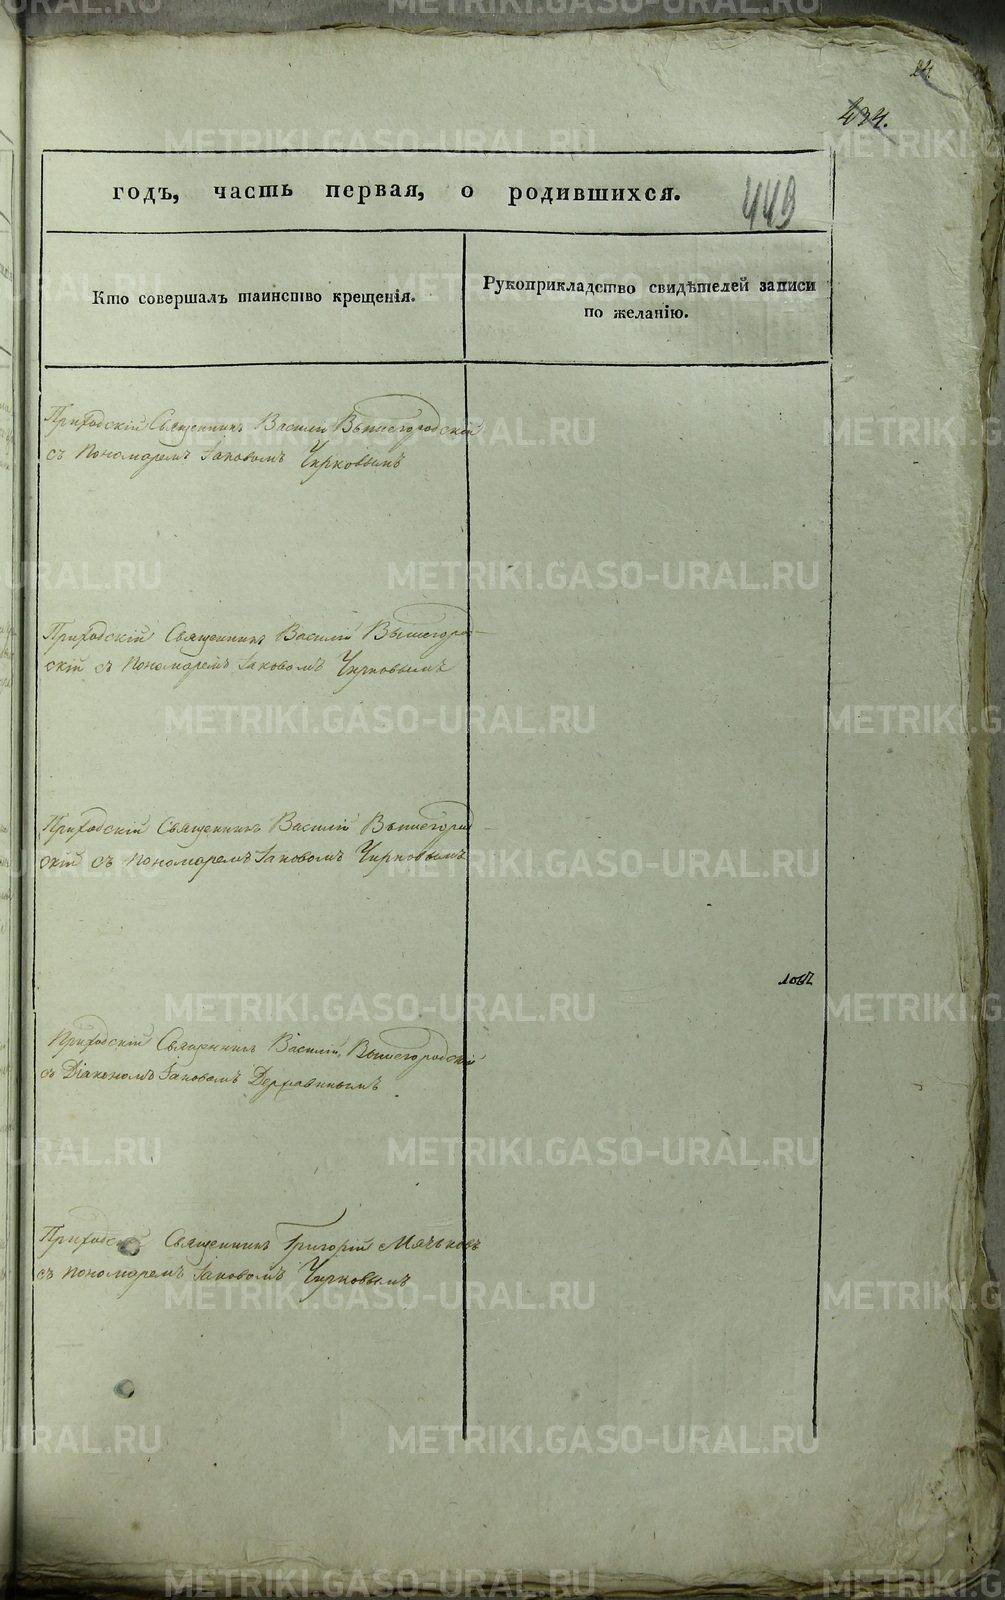 24
434.
годъ, часть первая, о родившихся.
449
Кто совершалъ таинство крещенія.
Рукоприкладство свидѣтелей записи
по желанію.
Приходскій Священникъ Василій Вышегородскій
съ Пономаремъ Іаковомъ Чирковымъ
Приходскій Священникъ Василій Вышегород-
скій съ Пономаремъ Іаковомъ Чирковымъ
Приходскій Священникъ Василій Вышегород-
скій съ Пономаремъ Іаковомъ Чирковымъ
Приходскій Священникъ Василій Вышегородскій
съ Діакономъ Іаковомъ Державинымъ
Приходскій Священникъ Григорій Мячьковъ
съ Пономаремъ Іаковомъ Чирковымъ
METRIKI.GASO-URAL.RU